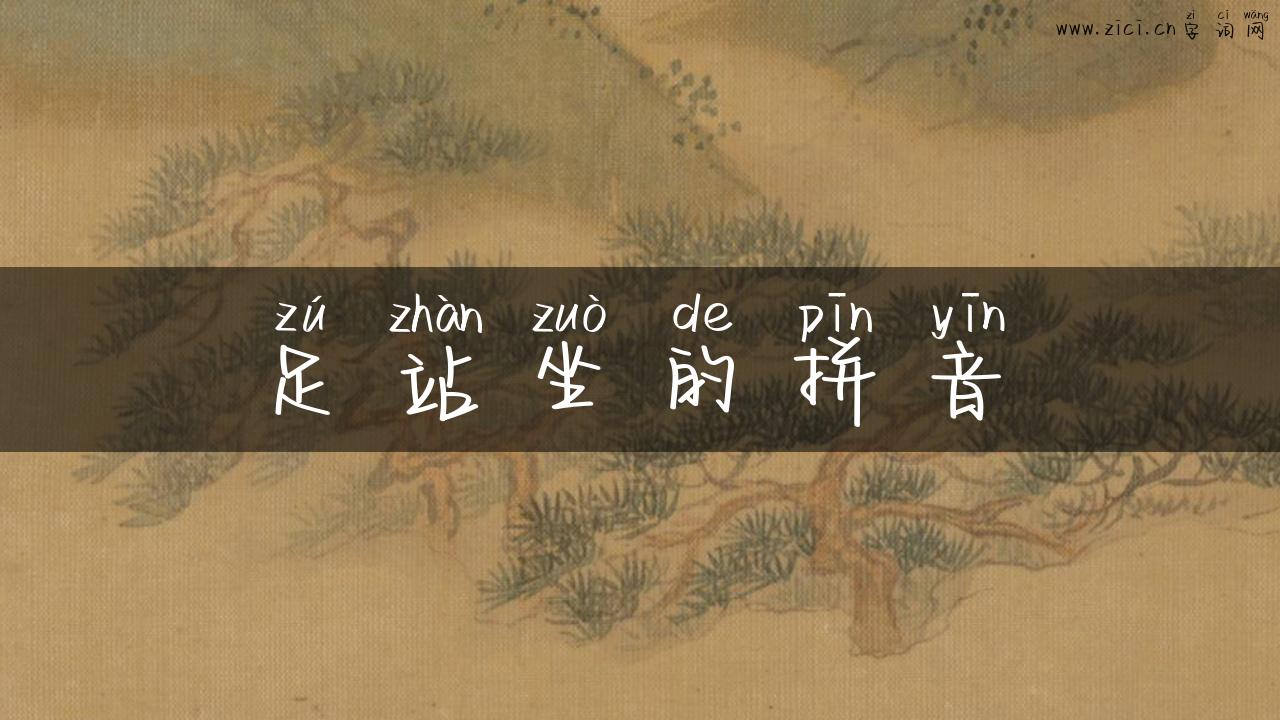 zì cí wǎng
www.zici.cn 字词网
zú zhàn zuò de pīn yīn
足站坐的拼音